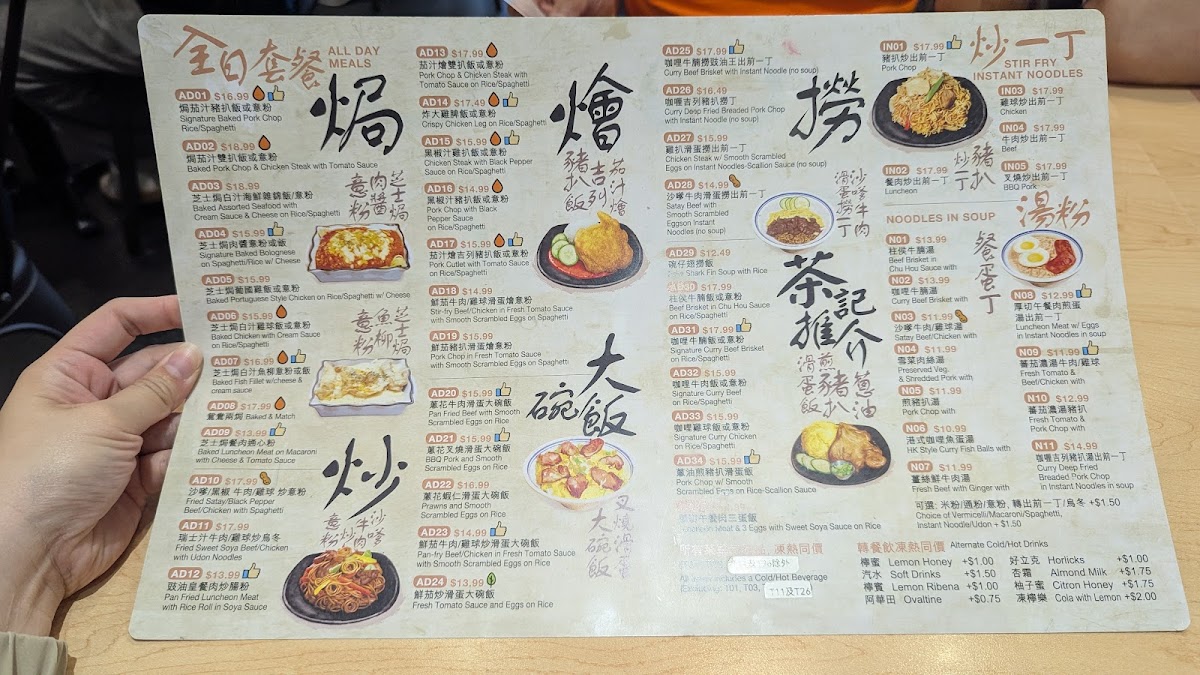 全日套餐 ALL DAY
MEALS
AD01 $16.99
焗茄汁豬扒飯或意粉
Signature Baked Pork Chop
Rice/Spaghetti
AD02 $18.99
焗茄汁雙扒飯或意粉
Baked Pork Chop & Chicken Steak with Tomato Sauce
AD03 $18.99
芝士焗白汁海鮮雜錦飯/意粉
Baked Assorted Seafood with
Cream Sauce & Cheese on Rice/Spaghetti
AD04 $15.99
芝士焗肉醬意粉或飯
Signature Baked Bolognese
on Spaghetti/Rice w/ Cheese
AD05 $15.99
芝士焗葡國雞飯或意粉
Baked Portuguese Style Chicken on Rice/Spaghetti w/ Cheese
AD06 $15.99
芝士焗白汁雞飯或意粉
Baked Chicken with Cream Sauce
on Rice/Spaghetti
AD07 $16.99
芝士焗白汁魚柳意粉或飯
Baked Fish Fillet w/cheese &
cream sauce
AD08 $17.99
鴛鴦兩焗 Baked & Match
AD09 $13.99
芝士焗餐肉通心粉
Baked Luncheon Meat on Macaroni
with Cheese & Tomato Sauce
AD10 $17.99
沙嗲/黑椒 牛肉/雞球 炒意粉
Fried Satay/Black Pepper
Beef/Chicken with Spaghetti
AD11 $17.99
瑞士汁牛肉/雞球炒烏冬
Fried Sweet Soya Beef/Chicken
with Udon Noodles
AD12 $13.99
豉油皇餐肉炒腸粉
Pan Fried Luncheon Meat
with Rice Roll in Soya Sauce
焗
芝士焗
肉醬
意粉
芝士焗
魚柳
意粉
炒
沙嗲
牛肉
炒
意粉
AD13 $17.99
茄汁燴雙扒飯或意粉
Pork Chop & Chicken Steak with
Tomato Sauce on Rice/Spaghetti
AD14 $17.49
炸大雞髀飯或意粉
Crispy Chicken Leg on Rice/Spaghetti
AD15 $15.99
黑椒汁雞扒飯或意粉
Chicken Steak with Black Pepper
Sauce on Rice/Spaghetti
AD16 $14.99
黑椒汁豬扒飯或意粉
Pork Chop with Black
Pepper Sauce
on Rice/Spaghetti
AD17 $15.99
茄汁燴吉列豬扒飯或意粉
Pork Cutlet with Tomato Sauce
on Rice/Spaghetti
AD18 $14.99
鮮茄牛肉/雞球滑蛋燴意粉
Stir-fry Beef/Chicken in Fresh Tomato Sauce
with Smooth Scrambled Eggs on Spaghetti
AD19 $15.99
鮮茄豬扒滑蛋燴意粉
Pork Chop in Fresh Tomato Sauce
with Smooth Scrambled Eggs
on Spaghetti
燴
茄汁燴
吉列
豬扒飯
AD20 $15.99
蔥花牛肉滑蛋大碗飯
Pan Fried Beef with Smooth
Scrambled Eggs on Rice
AD21 $15.99
蔥花叉燒滑蛋大碗飯
BBQ Pork and Smooth
Scrambled Eggs on Rice
AD22 $16.99
蔥花蝦仁滑蛋大碗飯
Prawns and Smooth
Scrambled Eggs on Rice
AD23 $14.99
鮮茄牛肉/雞球炒滑蛋大碗飯
Pan-fry Beef/Chicken in Fresh Tomato Sauce
with Smooth Scrambled Eggs on Rice
AD24 $13.99
鮮茄炒滑蛋大碗飯
Fresh Tomato Sauce and Eggs on Rice
大飯
碗
叉燒滑蛋
大碗飯
AD25 $17.99
咖喱牛腩撈豉油王出前一丁
Curry Beef Brisket with Instant Noodle (no soup)
AD26 $16.49
咖喱吉列豬扒撈丁
Curry Deep Fried Breaded Pork Chop
with Instant Noodle (no soup)
AD27 $15.99
雞扒滑蛋撈出前一丁
Chicken Steak w/ Smooth Scrambled
Eggs on Instant Noodles-Scallion Sauce (no soup)
AD28 $14.99
沙嗲牛肉滑蛋撈出前一丁
Satay Beef with
Smooth Scrambled
Eggson Instant
Noodles (no soup)
撈
沙嗲牛肉
滑蛋撈丁
AD29 $12.49
碗仔翅撈飯
Fake Shark Fin Soup with Rice
AD30 $17.99
柱侯牛腩飯或意粉
Beef Brisket in Chu Hou Sauce
on Rice/Spaghetti
AD31 $17.99
咖喱牛腩飯或意粉
Signature Curry Beef Brisket
on Rice/Spaghetti
AD32 $15.99
咖喱牛肉飯或意粉
Signature Curry Beef
on Rice/Spaghetti
AD33 $15.99
咖喱雞球飯或意粉
Signature Curry Chicken
on Rice/Spaghetti
AD34 $15.99
蔥油煎豬扒滑蛋飯
Pork Chop w/ Smooth
Scrambled Eggs on Rice-Scallion Sauce
茶記
推介
蔥油
煎豬扒
滑蛋飯
Meat & 3 Eggs with Sweet Soya Sauce on Rice
凍熱同價
a Cold/Hot Beverage
T01, T03,
T11及T26
IN01 $17.99
豬扒炒出前一丁
Pork Chop
炒一丁
STIR FRY
INSTANT NOODLES
IN03 $17.99
雞球炒出前一丁
Chicken
IN04 $17.99
牛肉炒出前一丁
Beef
IN02 $17.99
餐肉炒出前一丁
Luncheon
IN05 $17.99
叉燒炒出前一丁
BBQ Pork
豬扒
炒一丁
NOODLES IN SOUP 湯粉
N01 $13.99
柱侯牛腩湯
Beef Brisket in
Chu Hou Sauce with
N02 $13.99
咖喱牛腩湯
Curry Beef Brisket with
N03 $11.99
沙嗲牛肉/雞球湯
Satay Beef/Chicken with
N04 $11.99
雪菜肉絲湯
Preserved Veg.
& Shredded Pork with
N05 $11.99
煎豬扒湯
Pork Chop with
N06 $10.99
港式咖喱魚蛋湯
HK Style Curry Fish Balls with
N07 $11.99
薑絲鮮牛肉湯
Fresh Beef with Ginger with
餐蛋丁
N08 $12.99
厚切午餐肉煎蛋
湯出前一丁
Luncheon Meat w/ Eggs
in Instant Noodles in soup
N09 $11.99
蕃茄濃湯牛肉/雞球
Fresh Tomato &
Beef/Chicken with
N10 $12.99
蕃茄濃湯豬扒
Fresh Tomato &
Pork Chop with
N11 $14.99
咖喱吉列豬扒湯出前一丁
Curry Deep Fried
Breaded Pork Chop
in Instant Noodles in soup
可選: 米粉/通粉/意粉, 轉出前一丁/烏冬 +$1.50
Choice of Vermicelli/Macaroni/Spaghetti,
Instant Noodle/Udon + $1.50
轉餐飲凍熱同價 Alternate Cold/Hot Drinks
檸蜜 Lemon Honey +$1.00
汽水 Soft Drinks +$1.50
檸賓 Lemon Ribena +$1.00
阿華田 Ovaltine +$0.75
好立克 Horlicks +$1.00
杏霜 Almond Milk +$1.75
柚子蜜 Citron Honey +$1.75
凍檸樂 Cola with Lemon +$2.00